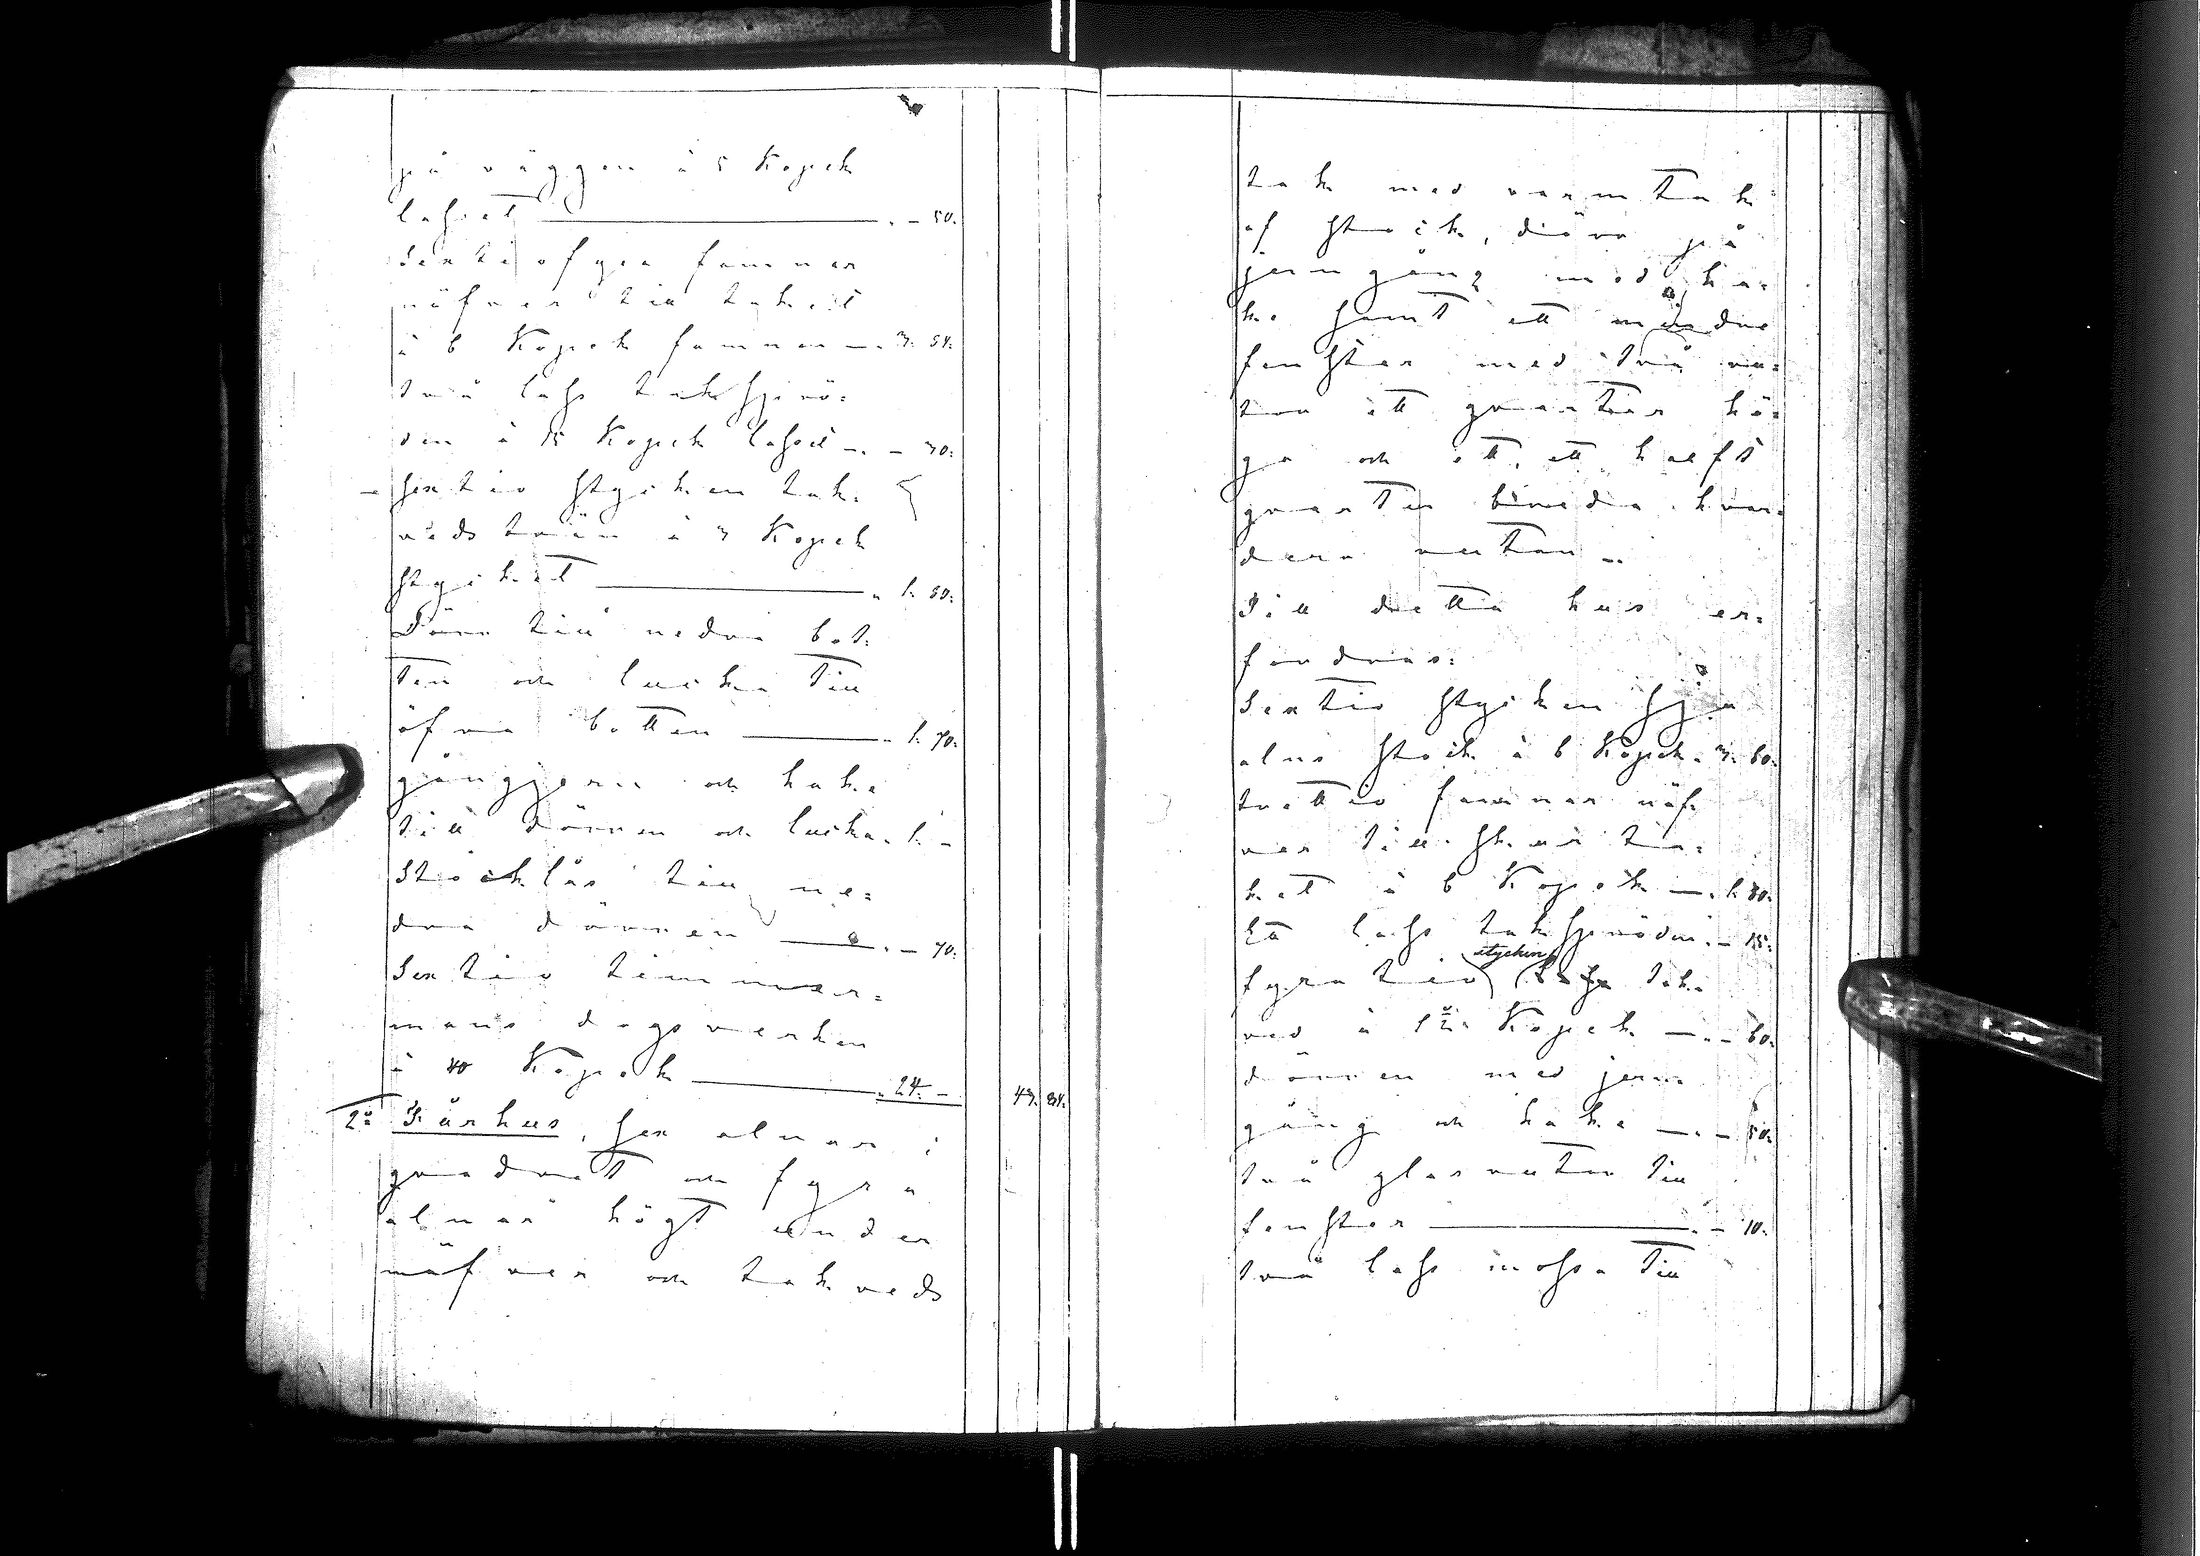 på väggen à 5 Kopek
lasset — . – 50.
Sextiofyra famnar
näfver till taket
à 6 Kopek famnen — . 3. 84.
två lass taksprö=
den à 15 Kopek lasset — . – 30.
– sextio stycken tak=
vedsträn à 3 Kopek
stycket — . 1. 80.
Dörr till nedra bot=
ten och lucka till
öfra botten — . 1. 70.
gångjern och hake
till dörren och lucka . 1. –
Stocklås till ne=
dra dörren — . – 70.
Sextio timmer=
mans dagsverken
à 40 Kopek — . 24. – 43. 84.
2:o Fårhus, sex alnar i
qvadrat och fyra
alnar högt under
näfver och takveds
tak med varmtak
af stock, dörr på
jerngång med ha=
ke samt ett mindre
fenster med två ru=
tor ett qvarter hö=
ga och ett, ett halft
qvarter breda hvar=
dera rutan –
Till detta hus er=
fordras:
Sextio stycken sju
alns stock à 6 Kopek . 3. 60.
trettio famnar näf=
ver till fårhusta=
ket à 6 Kopek — . 1. 80.
Ett lass takspröden . – 15.
stycken
fyratio lass tak=
ved à 1 1/2 Kopek — . – 60.
dörren med jern=
gång och hake — . – 50.
två glasrutor till
fenster — . – 10.
två lass mossa till